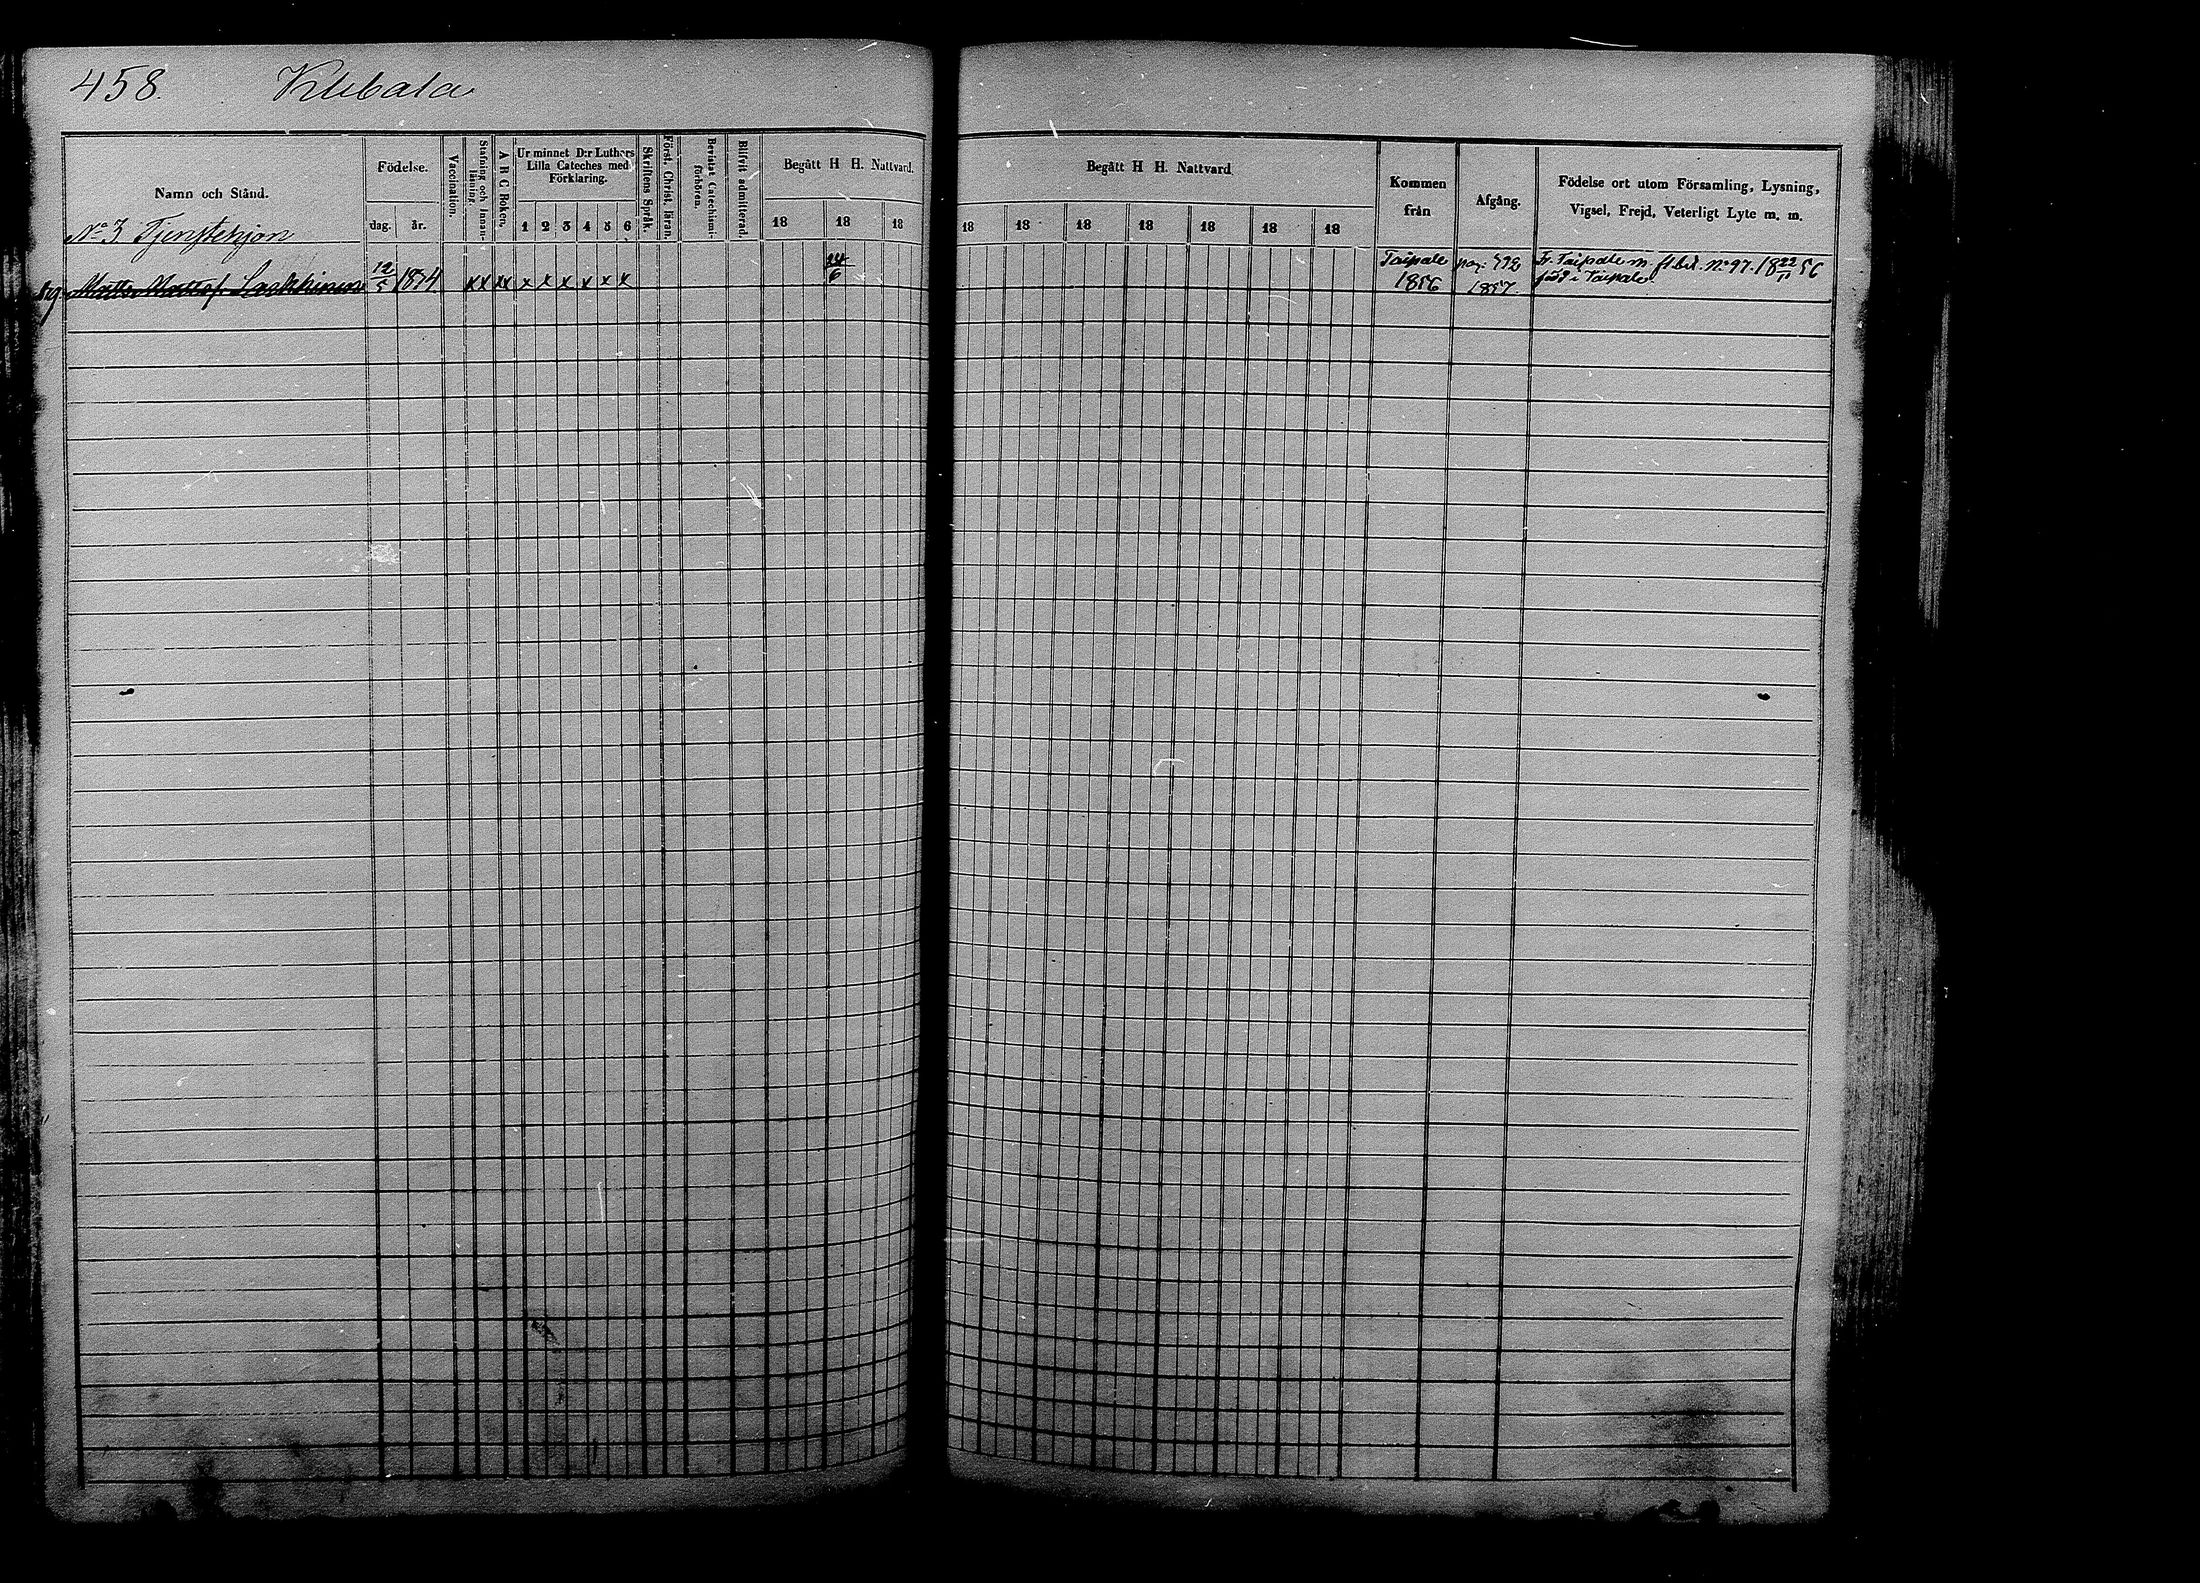 458. Klibala
Namn och Stånd.
Födelse.
dag. år.
Vaccination.
Stafning och Innanläsning.
A B C Boken.
Ur minnet D:r Luthers
Lilla Cateches med
Förklaring.
1 2 3 4 5 6
Skriftens Språk.
Först. Christ. läran.
Bevistat Catechismiförhören.
Blifvit admitterad.
Begått H H. Nattvard.
18 18 18
Begått H H. Nattvard
18 18 18 18 18 18 18
Kommen
från
Afgång.
Födelse ort utom Församling, Lysning,
Vigsel, Frejd, Veterligt Lyte m. m.
No 3 Tjenstehjon
Matts Mattsf. 12/5 xx xx x x x x x x 24/6
Taipale
1856
pag. 792
1857.
Fr. Taipale m. fl. bet. No 97. 18 22/11 56
född i Taipale.